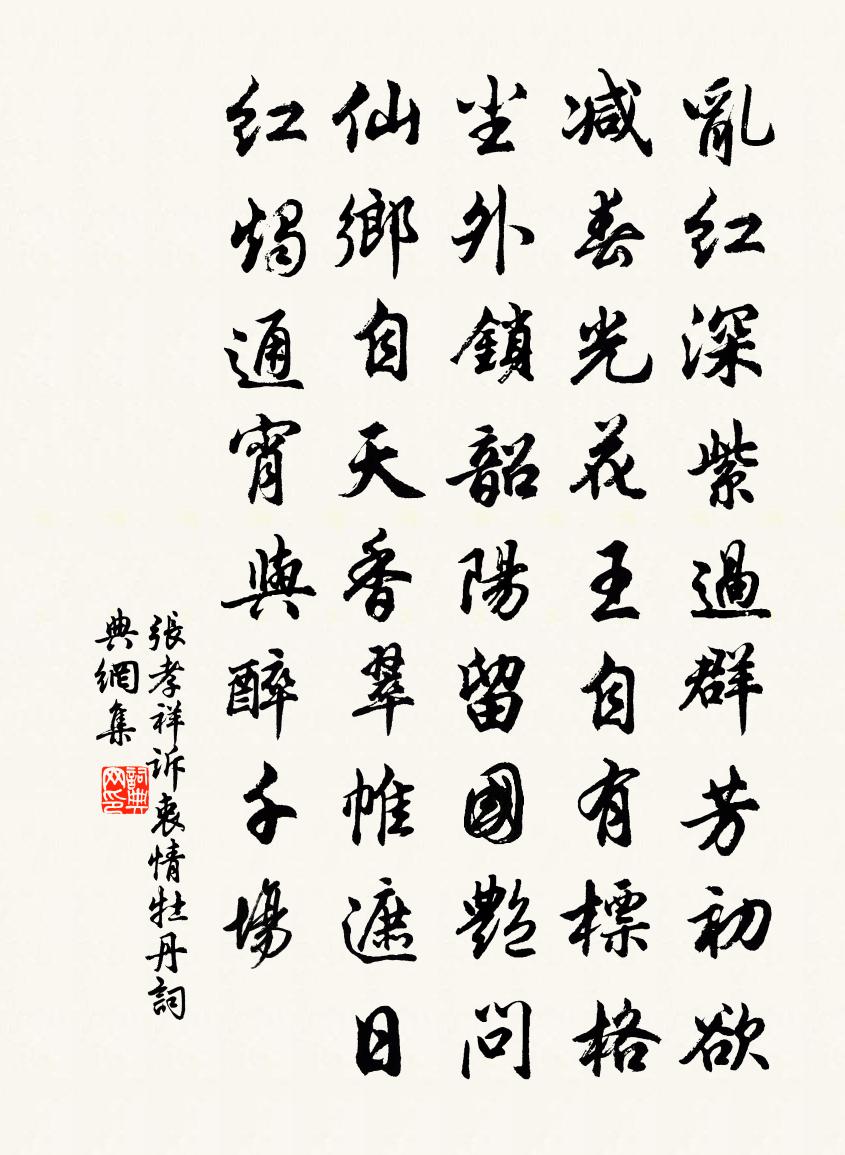 亂紅深紫過群芳初欲
減春光花王自有標格
尘外鎖韶陽留國艷問
仙鄉自天香翠帷遮日
紅燭通宵與醉千場
張孝祥訴衷情牡丹詞
典網集
詞典网印